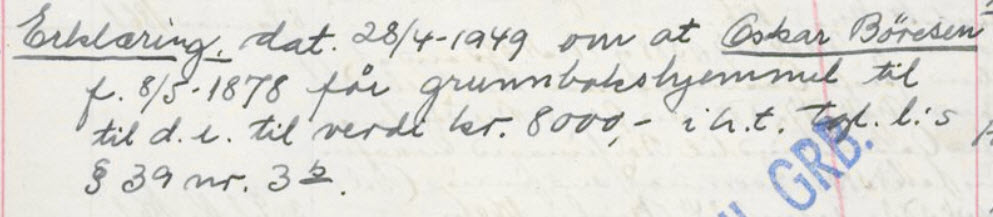 Erklæring, dat. 28/4-1949 om at Oskar Børesen
f. 8/5-1878 får grunnbokshjemmel til
til d. e. til verdi kr. 8000,- i h. t. tgl. l:s
§ 39 nr. 3 b.
GRB.